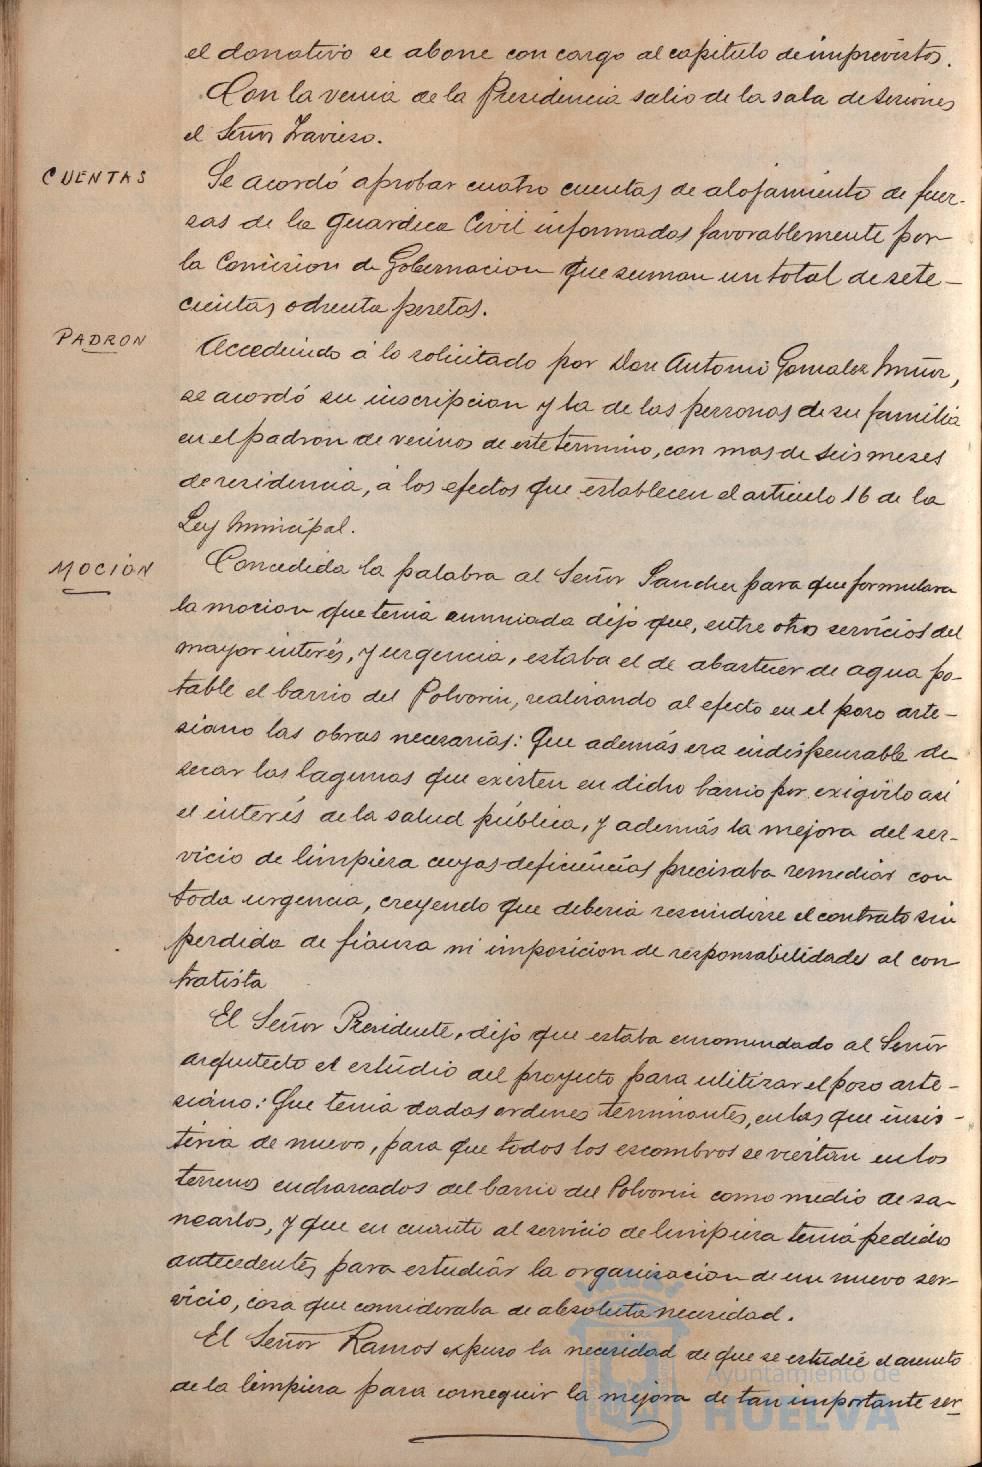 el donativo se abone con cargo al capitulo de imprevistos.
Con la venia de la Presidencia salio de la sala de sesiones
el Señor Travieso.
CUENTAS
Se acordó aprobar cuatro cuentas de alojamiento de fuer-
zas de la Guardia Civil informadas favorablemente por
la Comision de Gobernacion que suman un total de sete-
cientas ochenta pesetas.
PADRON
Accediendo á lo solicitado por Don Antonio Gonzalez Muñoz,
se acordó su inscripcion y la de las personas de su familia
en el padron de vecinos de este termino, con mas de seis meses
de residencia, á los efectos que establecen el articulo 16 de la
Ley Municipal.
MOCIÓN
Concedida la palabra al Señor Sanchez para que formulara
la mocion que tenia anunciada dijo que, entre otros servicios del
mayor interés, y urgencia, estaba el de abastecer de agua po-
table el barrio del Polvorin, realizando al efecto en el pozo arte-
siano las obras necesarias: Que además era indispensable de
secar las lagunas que existen en dicho barrio por exigirlo asi
el interés de la salud pública, y además la mejora del ser-
vicio de limpieza cuyas deficiencias precisaba remediar con
toda urgencia, creyendo que deberia rescindirse el contrato sin
perdida de fianza ni imposicion de responsabilidades al con
tratista
El Señor Presidente, dijo que estaba encomendado al Señor
arquitecto el estudio del proyecto para utilizar el pozo arte-
siano: Que tenia dadas ordenes terminantes, en las que insis-
tiria de nuevo, para que todos los escombros se viertan en los
terrenos encharcados del barrio del Polvorin como medio de sa-
nearlos, y que en cuanto al servicio de limpieza tenia pedidos
antecedentes para estudiar la organizacion de un nuevo ser-
vicio, cosa que consideraba de absoluta necesidad.
El Señor Ramos expuso la necesidad de que se estudie el asunto
de la limpieza para conseguir la mejora de tan importante ser-
Ayuntamiento de
HUELVA